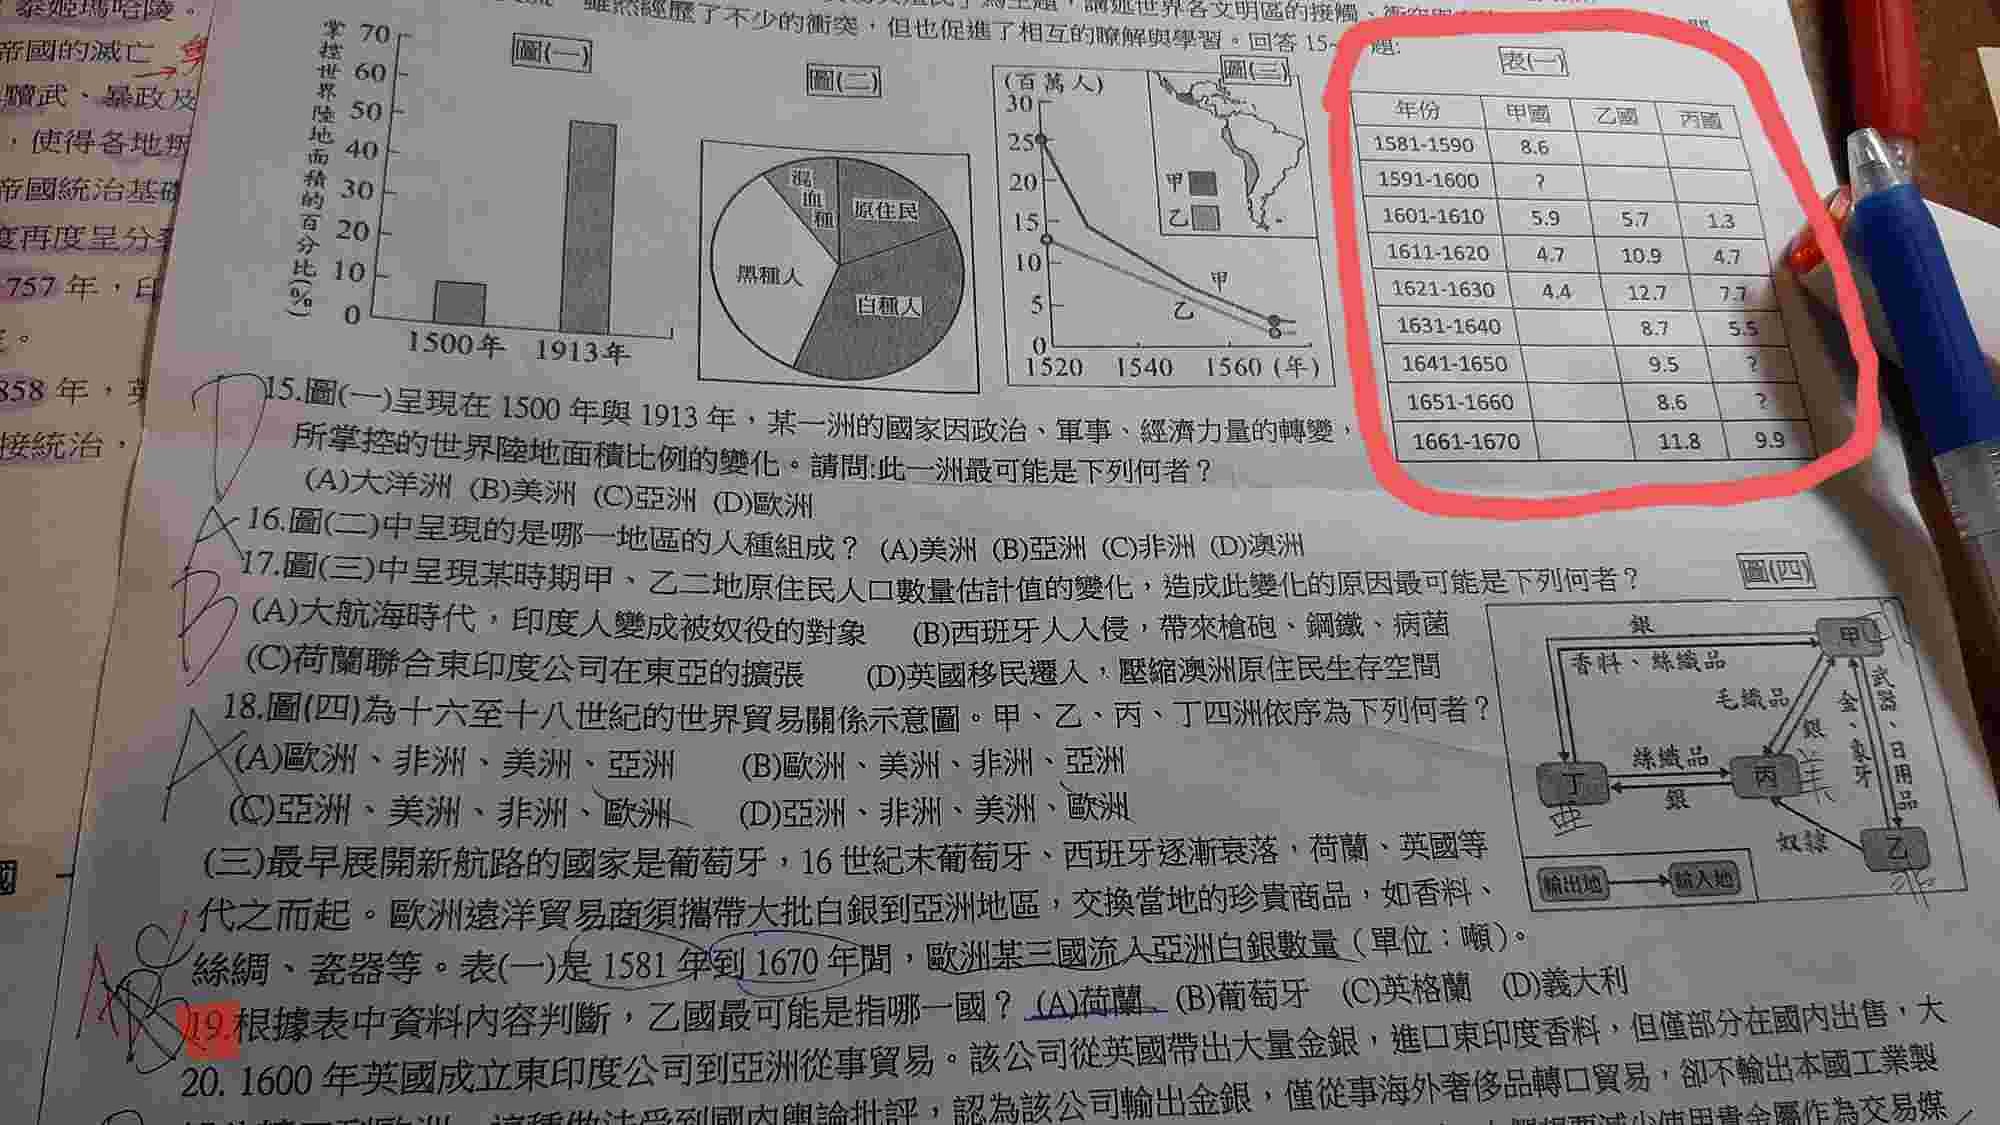 泰姬瑪哈陵。
帝國的滅亡
黷武、暴政及
，使得各地叛
帝國統治基礎
度再度呈分
757年，印
858年，英
接統治，
雖然經歷了不少的衝突，但也促進了相互的瞭解與學習。回答15~ 題:
講述世界各文明區的接觸、衝突
掌控世界陸地面積的百分比(%)
圖(一)
70
60
50
40
30
20
10
0
1500年 1913年
圖(二)
混血種
原住民
黑種人
白種人
圖(三)
(百萬人)
30
25
20
15
10
5
0
甲
乙
甲
乙
1520 1540 1560 (年)
表(一)
年份 甲國 乙國 丙國
1581-1590 8.6
1591-1600 ?
1601-1610 5.9 5.7 1.3
1611-1620 4.7 10.9 4.7
1621-1630 4.4 12.7 7.7
1631-1640 8.7 5.5
1641-1650 9.5 ?
1651-1660 8.6 ?
1661-1670 11.8 9.9
D
15.圖(一)呈現在1500年與1913年，某一洲的國家因政治、軍事、經濟力量的轉變，
所掌控的世界陸地面積比例的變化。請問:此一洲最可能是下列何者？
(A)大洋洲 (B)美洲 (C)亞洲 (D)歐洲
A
16.圖(二)中呈現的是哪一地區的人種組成？ (A)美洲 (B)亞洲 (C)非洲 (D)澳洲
B
17.圖(三)中呈現某時期甲、乙二地原住民人口數量估計值的變化，造成此變化的原因最可能是下列何者？
(A)大航海時代，印度人變成被奴役的對象 (B)西班牙人入侵，帶來槍砲、鋼鐵、病菌
(C)荷蘭聯合東印度公司在東亞的擴張 (D)英國移民遷入，壓縮澳洲原住民生存空間
A
18.圖(四)為十六至十八世紀的世界貿易關係示意圖。甲、乙、丙、丁四洲依序為下列何者？
(A)歐洲、非洲、美洲、亞洲 (B)歐洲、美洲、非洲、亞洲
(C)亞洲、美洲、非洲、歐洲 (D)亞洲、非洲、美洲、歐洲
圖(四)
銀
甲
香料、絲織品
毛織品
銀
金、象牙
武器、日用品
絲織品
丁
丙
銀
亞
美
奴隸
乙
非
輸出地 輸入地
(三)最早展開新航路的國家是葡萄牙，16世紀末葡萄牙、西班牙逐漸衰落，荷蘭、英國等
代之而起。歐洲遠洋貿易商須攜帶大批白銀到亞洲地區，交換當地的珍貴商品，如香料、
絲綢、瓷器等。表(一)是1581年到1670年間，歐洲某三國流入亞洲白銀數量（單位：噸）。
A
19.根據表中資料內容判斷，乙國最可能是指哪一國？ (A)荷蘭 (B)葡萄牙 (C)英格蘭 (D)義大利
20. 1600年英國成立東印度公司到亞洲從事貿易。該公司從英國帶出大量金銀，進口東印度香料，但僅部分在國內出售，大
這種做法受到國內輿論批評，認為該公司輸出金銀，僅從事海外奢侈品轉口貿易，卻不輸出本國工業製
減少使用貴金屬作為交易媒